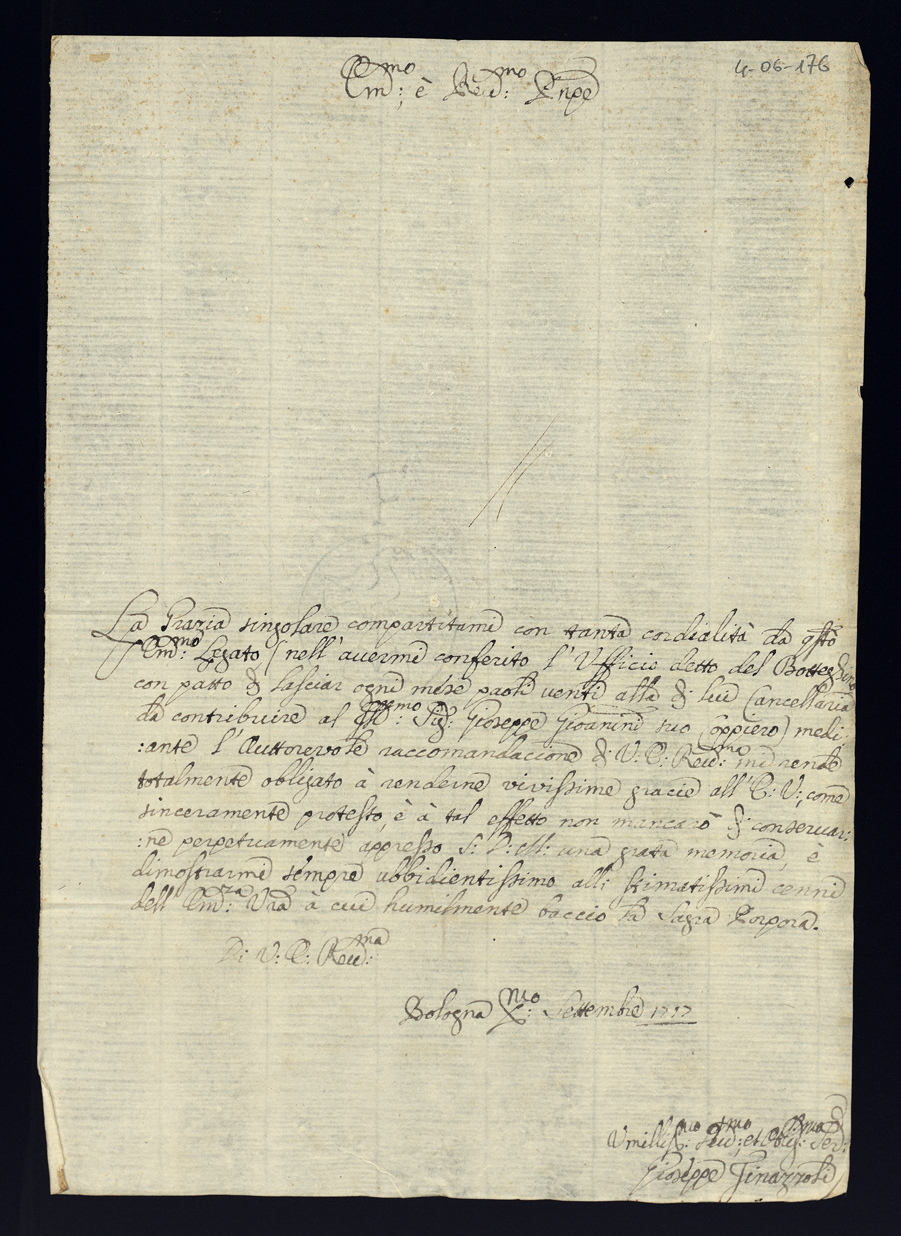 4-06-176
Em:mo è Reu:mo Prnpe
La Grazia singolare compartitami con tanta cordialità da qsto
Em:mo Legato (nell' auermi conferito l' Vfficio detto del Botteghino
con patto di lasciar ogni mese paoli uenti alla di lui Cancellaria
da contribuire al Sig: Gioseppe Gioannini suo Coppiero) medi:
:ante l' Auttoreuole raccomandacione di V: E: Reu:ma mi rende
totalmente obligato à renderne viuissime gracie all' E: V:, come
sinceramente protesto, è à tal effetto non mancarò di conseruar:
:ne perpetuamente appresso S: D: M: una grata memoria, è
dimostrarmi sempre ubbidientissimo alli stimatissimi cenni
dell' Em:za Vra à cui humilmente baccio la Sagra Porpora.
Di V: E: Reu:ma
Bologna X:mo Settembre 1717
Vmilliss:mo Deu:mo et Oblig:mo Ser:
Gioseppe Ginazzoli